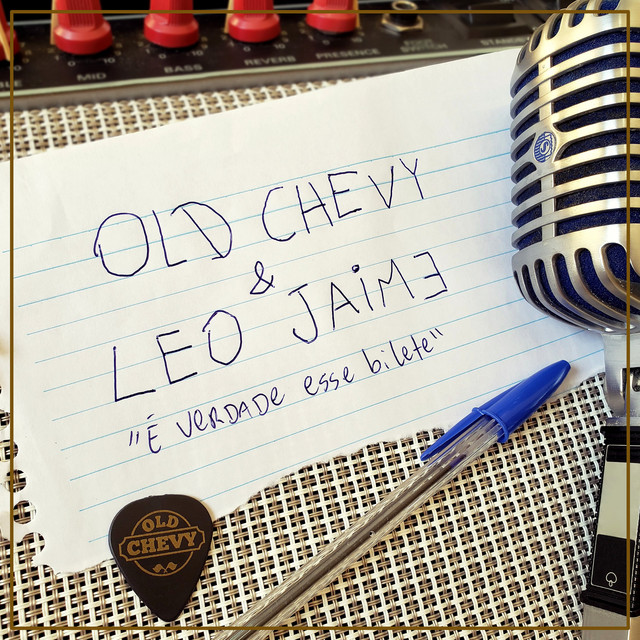 MID
BASS
REVERB
PRESENCE
OLD CHEVY
&
LEO JAiME
"É VERDADE esse bilete"
OLD
CHEVY